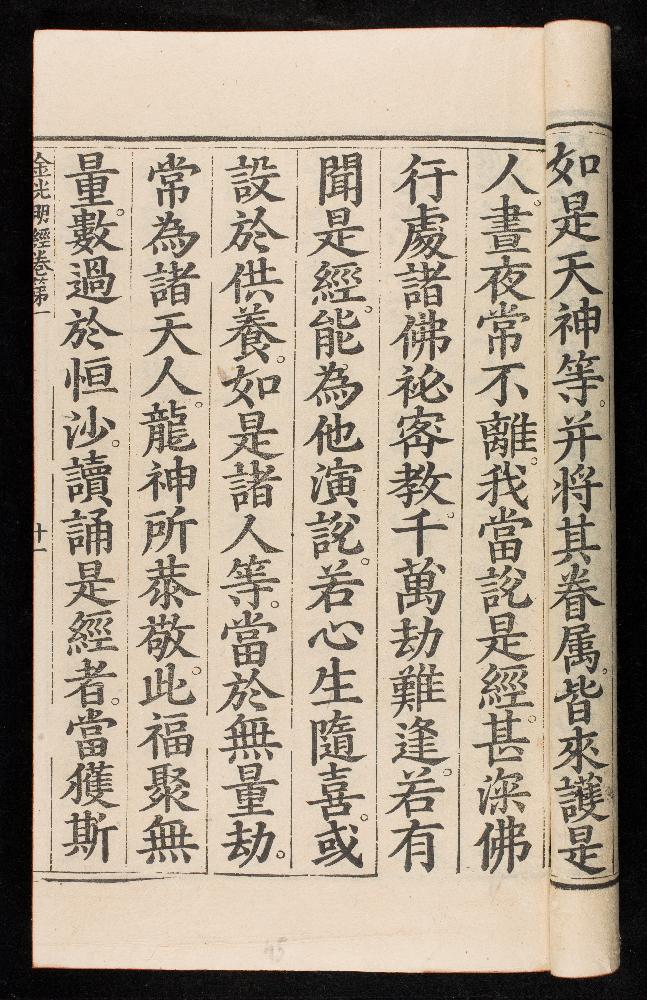 如是天神等。并将其眷属。皆來護是
人。晝夜常不離。我當說是經。甚深佛
行處諸佛祕密教。千萬劫難逢。若有
聞是經。能為他演說。若心生隨喜。或
設於供養。如是諸人等。當於無量劫。
常為諸天人。龍神所恭敬。此福聚無
量。數過於恒沙。讀誦是經者。當獲斯
金光明經卷第一
十一